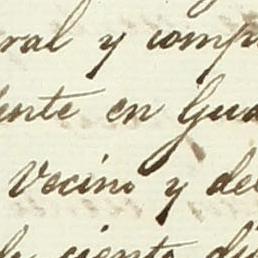 ral y comp
ente en Gua
Vecino y del
de ciento di